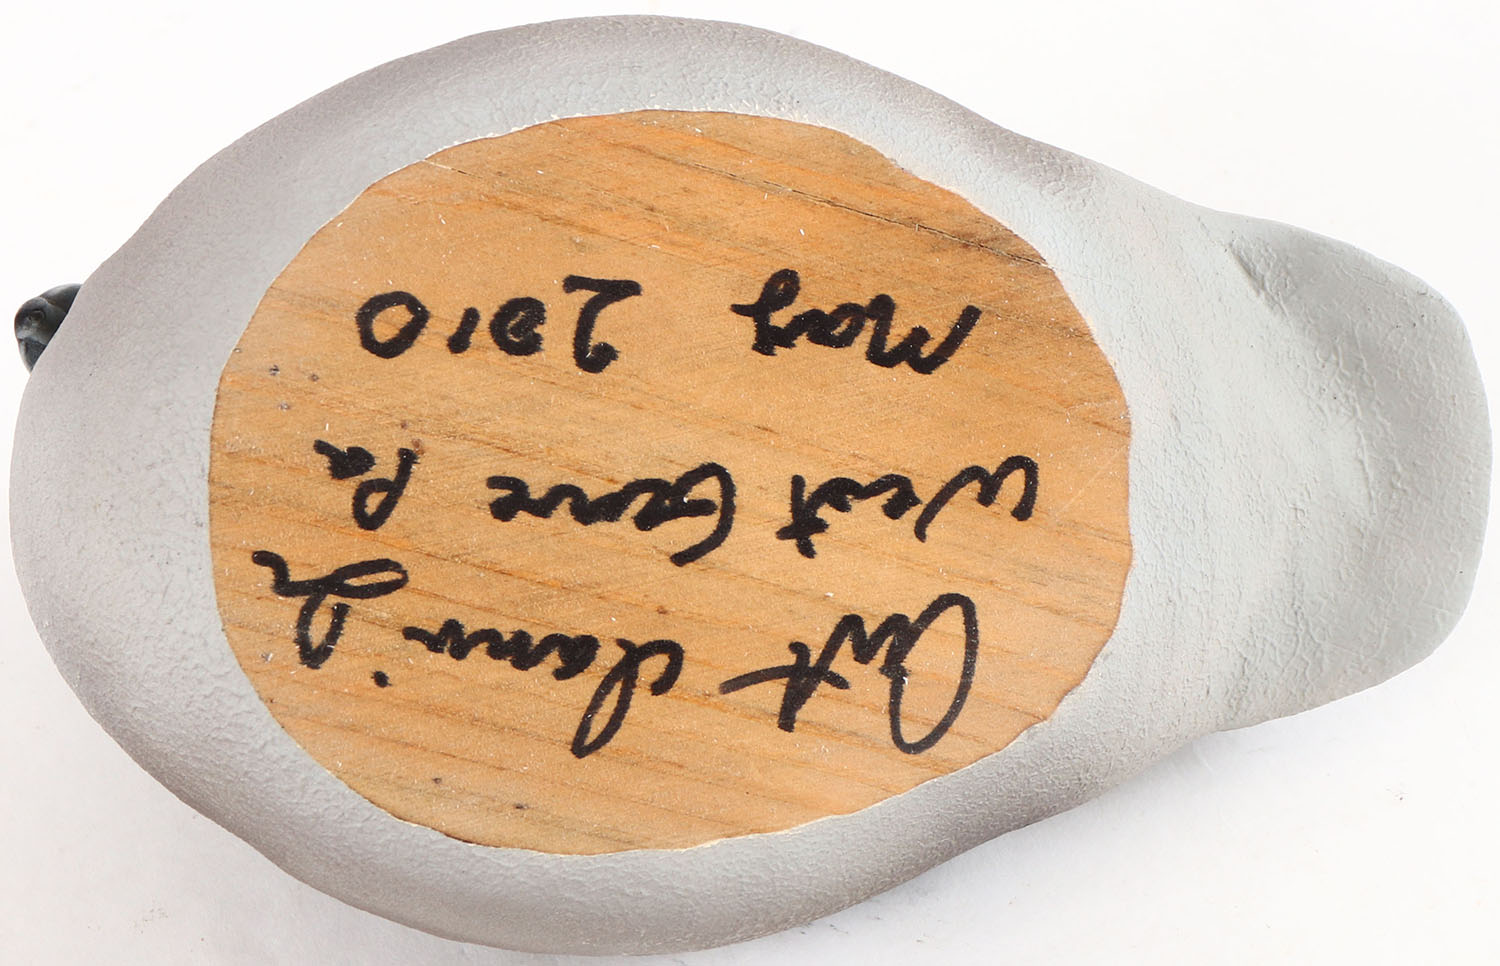 Art Jr
West Grove Pa
May 2010